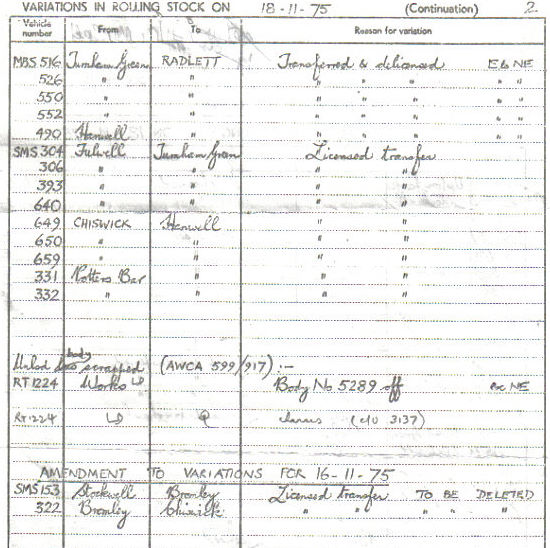 VARIATIONS IN ROLLING STOCK ON 18-11-75 (Continuation) 2.
Vehicle number From To Reason for variation
MBS 516 Turnham Green RADLETT Transferred & delicensed Eb NE
526 " " " " " " "
550 " " " " " " "
552 " " " " " " "
490 Hanwell " " " " " "
SMS 304 Fulwell Turnham Green Licensed transfer
306 " " " "
393 " " " "
640 " " " "
649 CHISWICK Hanwell " "
650 " " " "
659 " " " "
331 Potters Bar " " "
332 " " " "
body
scrapped (AWCA 599/917) :-
RT 1224 Works Body No 5289 off NE
RT 1224 (c/u 3137)
AMENDMENT TO VARIATIONS FOR 16-11-75
SMS 153 Stockwell Bromley Licensed transfer TO BE DELETED
322 Bromley Chiswick " " " " "